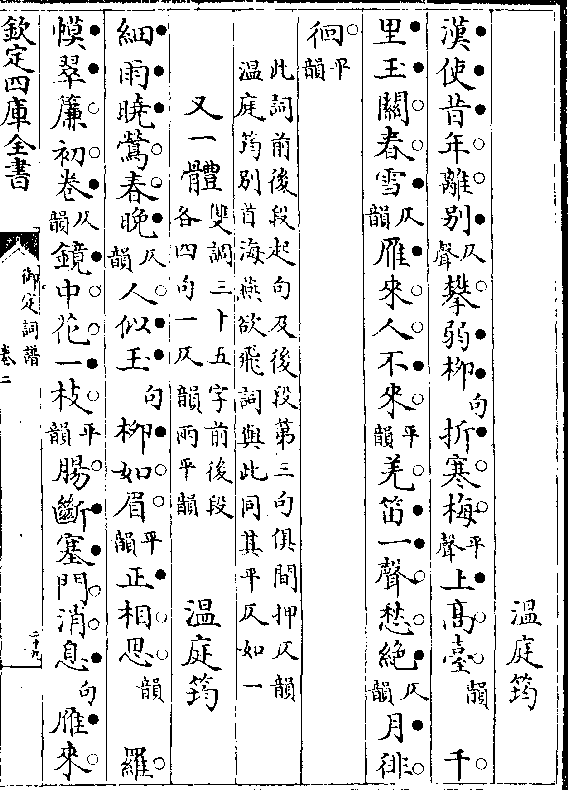 温庭筠
漢使昔年離别仄聲攀弱柳句折寒梅平聲上髙臺韻 千
里玉關春雪仄韻雁來人不來平韻羌笛一聲愁絶仄韻月徘
徊平韻
此詞前後段起句及後段第三句俱間押仄韻
温庭筠别首海燕欲飛詞與此同其平仄如一
又一體 雙調三十五字前後段各四句一仄韻兩平韻 温庭筠
細雨曉鶯春晚仄韻人似玉句柳如眉平韻正相思韻 羅
幙翠簾初卷仄韻鏡中花一枝平韻腸斷塞門消息句雁來
欽定四庫全書 御定詞譜 卷二 二十九